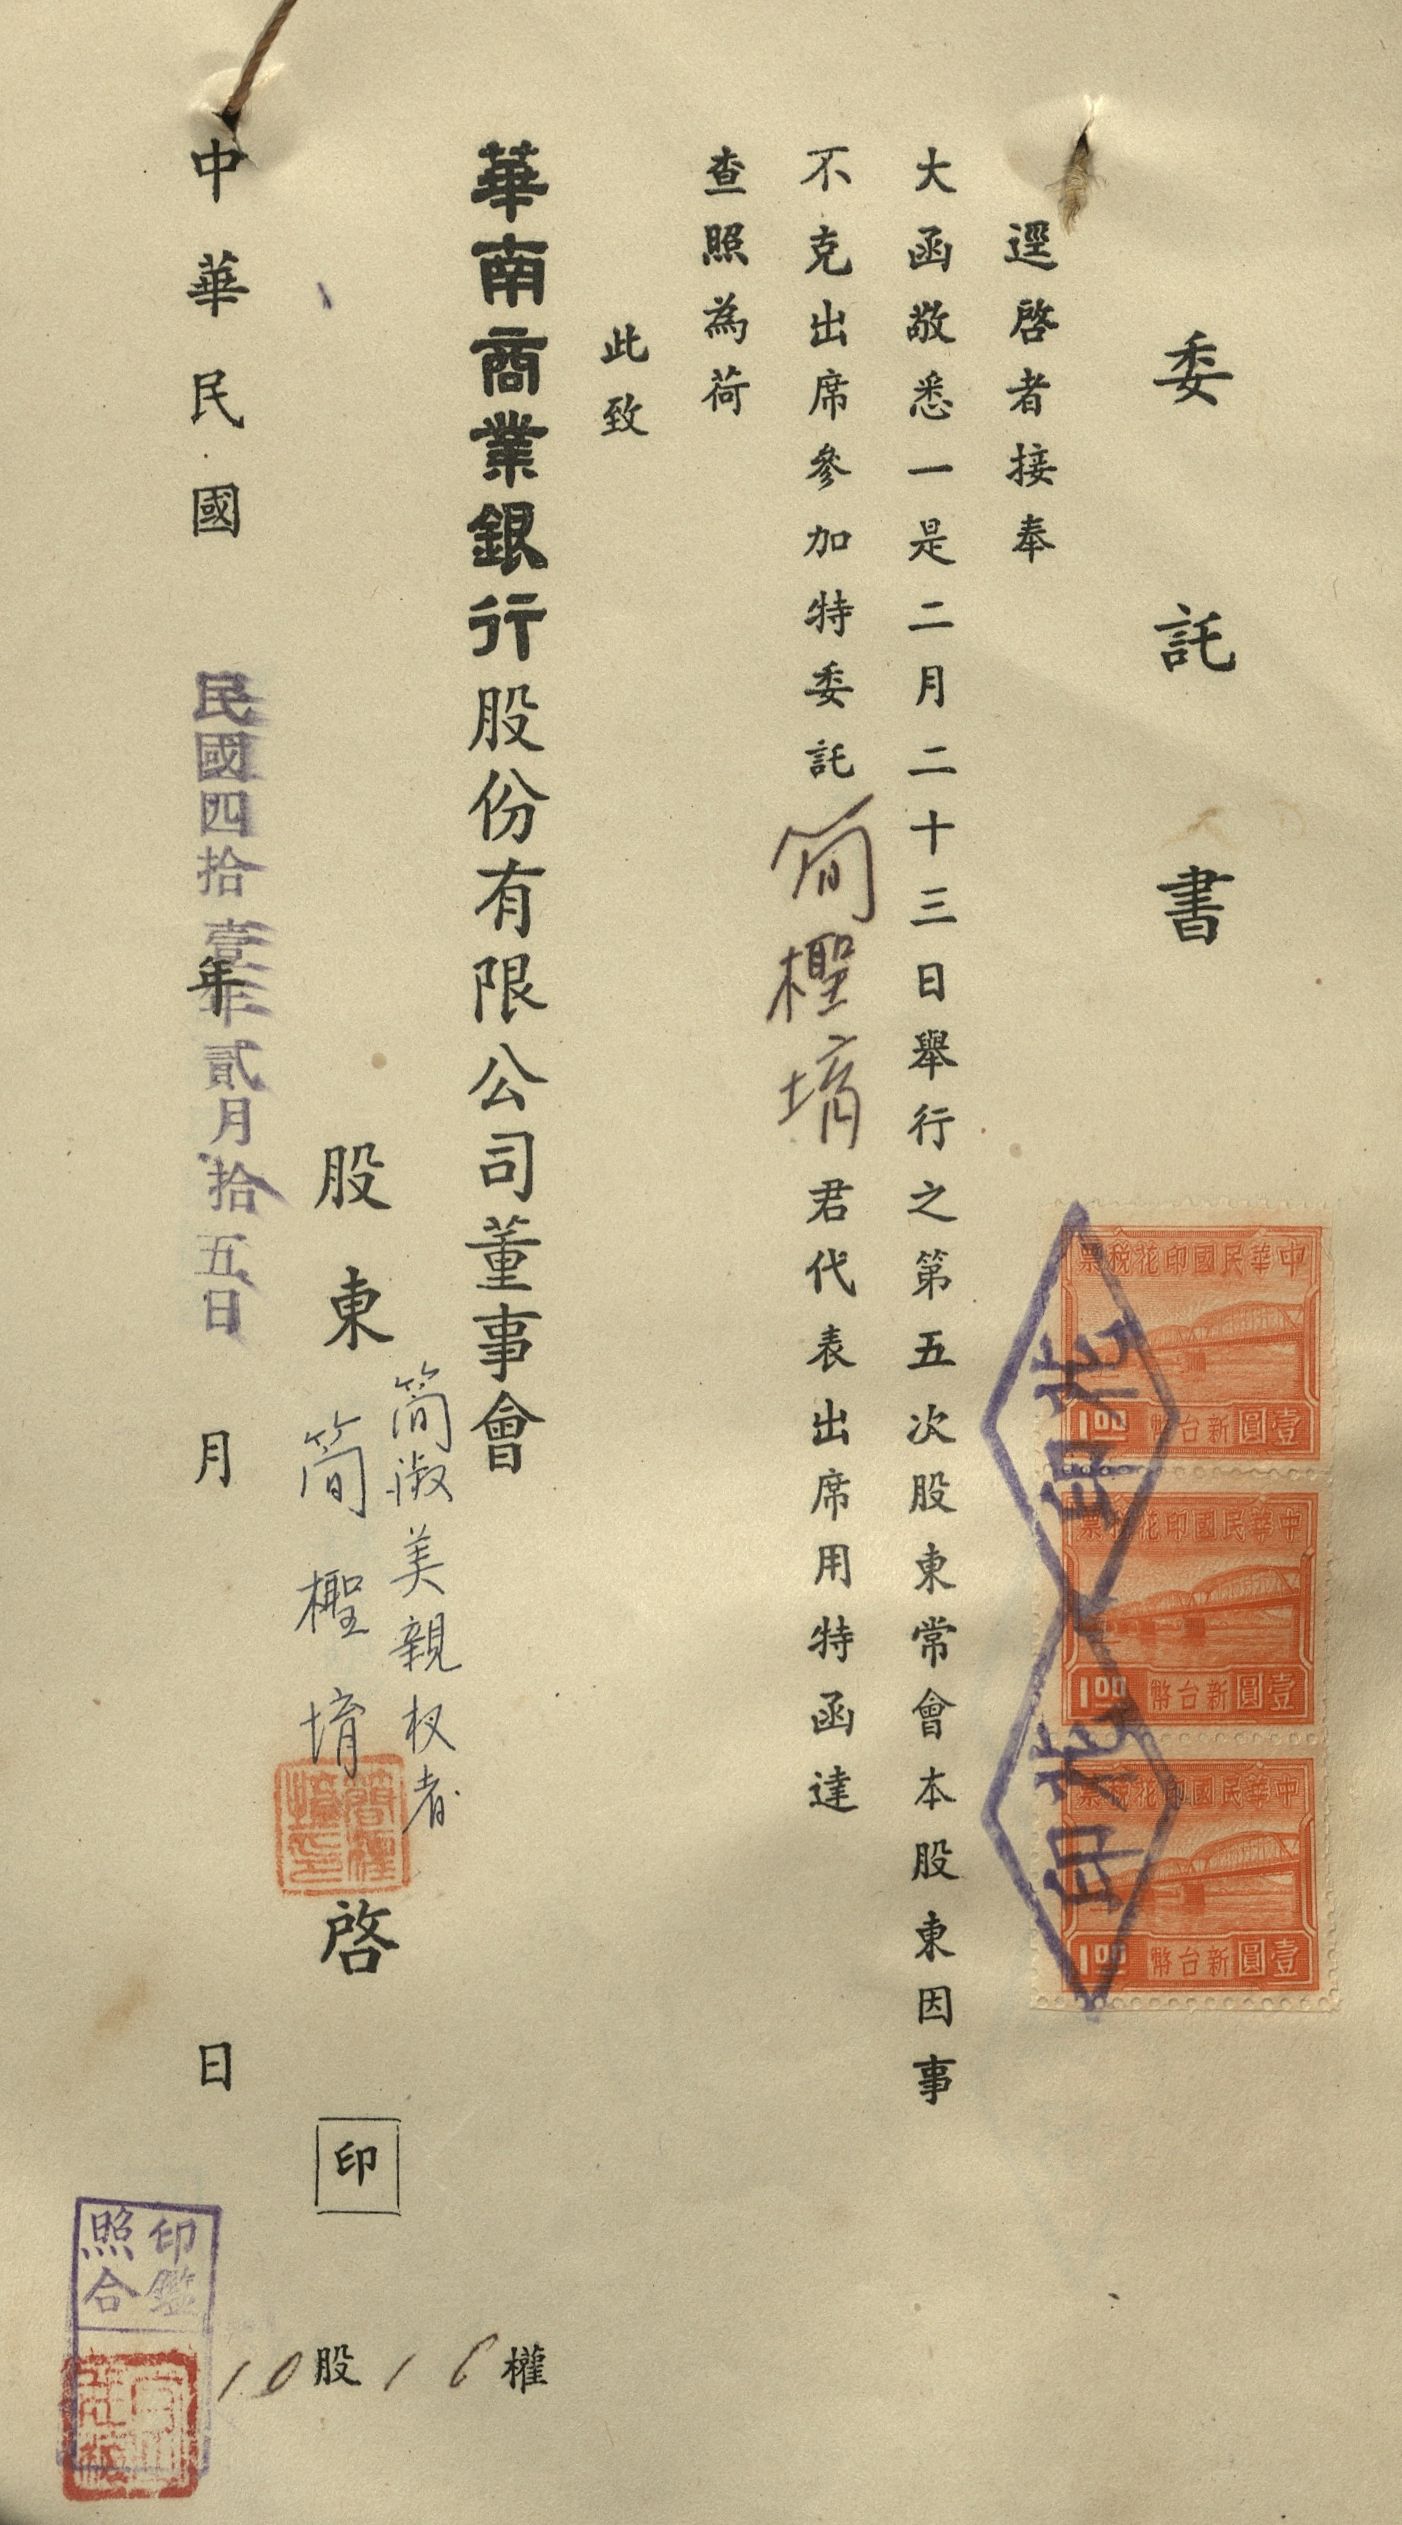 委託書
逕啓者接奉
大函敬悉一是二月二十三日舉行之第五次股東常會本股東因事
不克出席參加特委託簡檉堉君代表出席用特函達
查照為荷
此致
華南商業銀行股份有限公司董事會
簡淑美親权者
股東簡檉堉啓印
10股16權
中華民國年月日
民國四拾壹年貳月拾五日
中華民國印花稅票
1.00新台幣壹圓
中華民國印花稅票
1.00新台幣壹圓
中華民國印花稅票
1.00新台幣壹圓
印花
印花
印鑑
照合